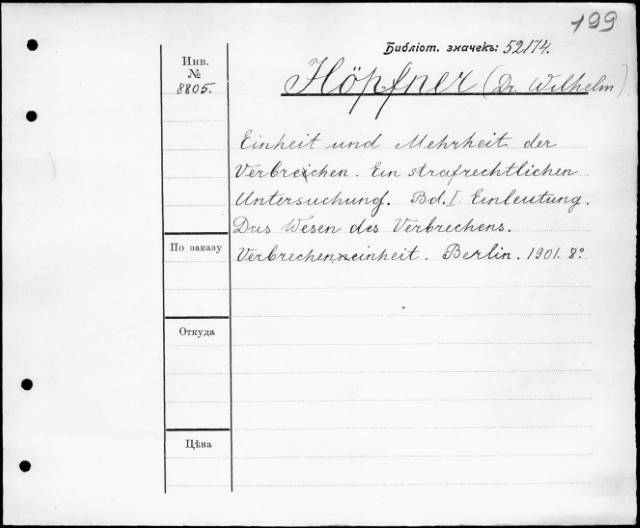 199
Библіот. значекъ: 52174.
Инв.
№
8805.
Höpfner (Dr. Wilhelm)
Einheit und Mehrheit der
Verbrechen. Ein strafrechtlichen
Untersuchung. Bd. I. Einleutung.
Das Wesen des Verbrechens.
Verbrechenseinheit. Berlin. 1901. 8º
По заказу
Откуда
Цѣна